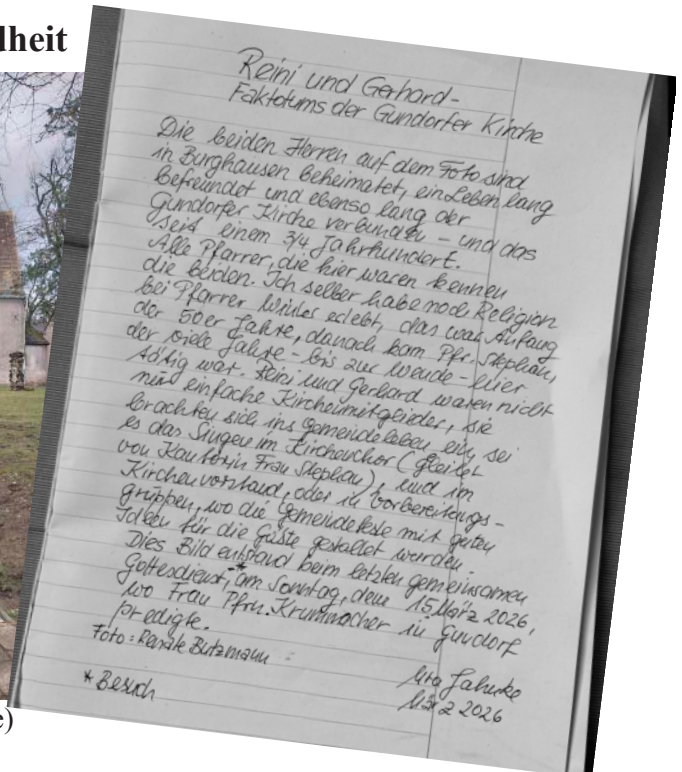 dheit
Reini und Gerhard-
Faktotums der Gundorfer Kirche
Die beiden Herren auf dem Foto sind
in Burghausen beheimatet, ein Leben lang
befreundet und ebenso lang der
Gundorfer Kirche verbunden – und das
seit einem 3/4 Jahrhundert.
Alle Pfarrer, die hier waren kennen
die beiden. Ich selber habe noch Religion
bei Pfarrer erlebt, das war Anfang
der 50er Jahre, danach kam Pfr. Stephan,
der viele Jahre – bis zur Wende – hier
tätig war. Reini und Gerhard waren nicht
nur einfache Kirchenmitglieder, sie
brachten sich ins Gemeindeleben ein, sei
es das Singen im Kirchenchor (geleitet
von Kantorin Frau Stephan), und im
Kirchenvorstand, oder in Vorbereitungs-
gruppen, wo die Gemeindefeste mit guten
Ideen für die Gäste gestaltet wurden.
Dies Bild entstand beim letzten gemeinsamen
Gottesdienst,* am Sonntag, dem 15. März 2026,
wo Frau Pfrn. Krummacher in Gundorf
predigte.
Foto: Renate Butzmann
Jahnke
März 2026
* Besuch
e)